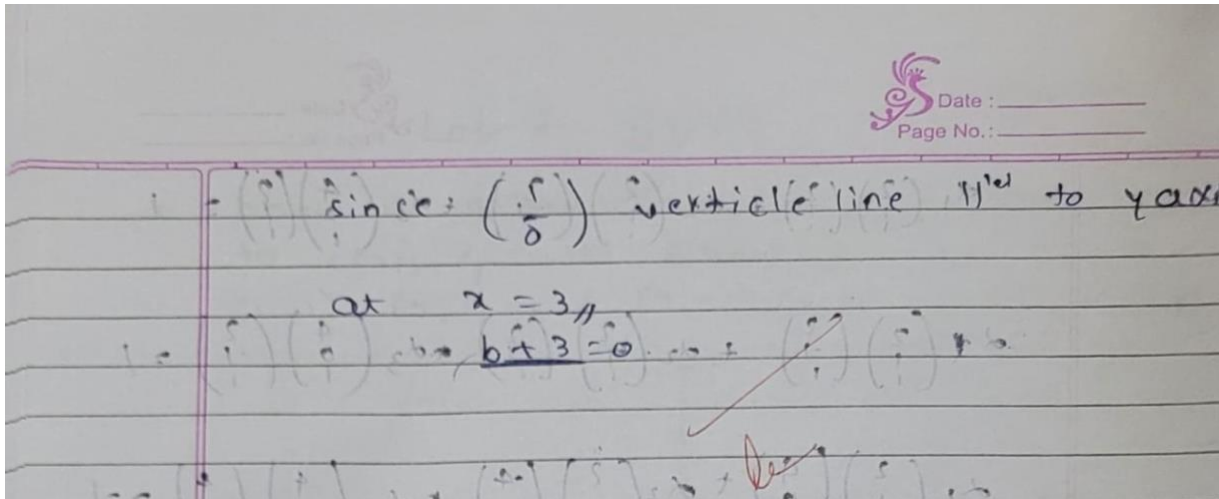 Date :
Page No.:
since: (r/0) verticle line 11'el to y ax
at x = 3 //
b + 3 = 0